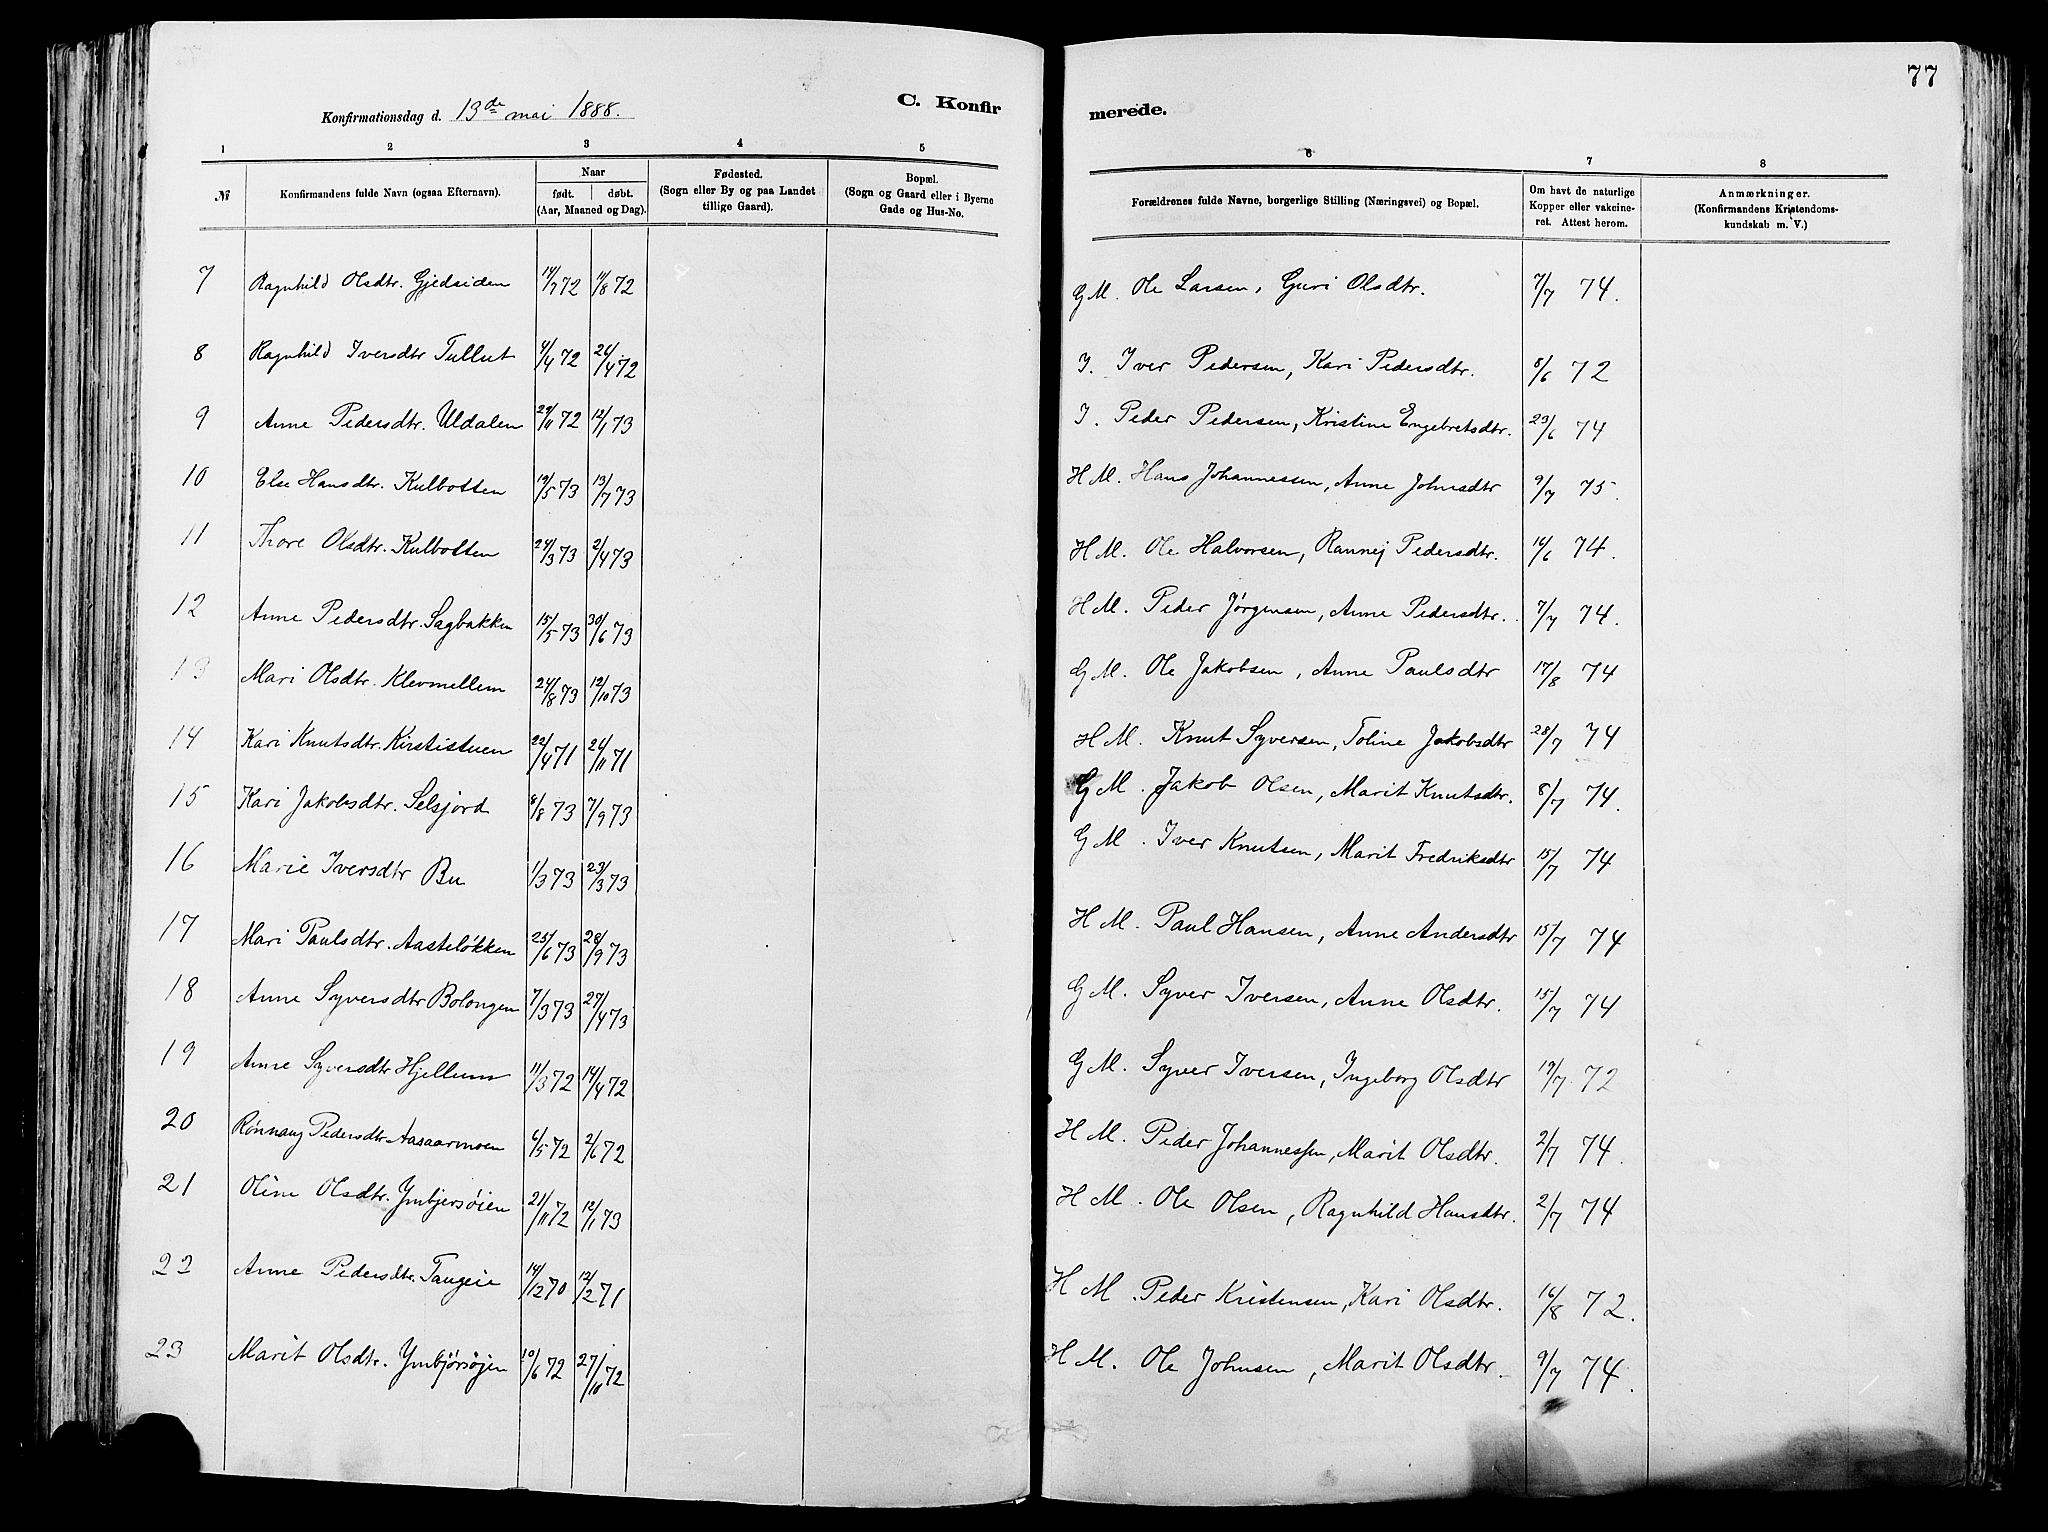 77
Konfirmationsdag d. 13de mai 1888. C. Konfirmerede.
1 2 3 4 5 6 7 8
№ Konfirmandens fulde Navn (ogsaa Efternavn). Naar født. døbt. (Aar, Maaned og Dag). Fødested. (Sogn eller By og paa Landet tillige Gaard). Bopæl. (Sogn og Gaard eller i Byerne Gade og Hus-No. Forældrenes fulde Navne, borgerlige Stilling (Næringsvei) og Bopæl. Om havt de naturlige Kopper eller vakcineret. Attest herom. Anmærkninger. (Konfirmandens Kristendomskundskab m. V.)
7 Ragnhild Olsdtr. Gjedsiden 14/7 72 11/8 72 G M. Ole Larsen, Guri Olsdtr. 7/7 74.
8 Ragnhild Iversdtr Tullut 4/4 72 26/4 72 I. Iver Pedersen, Kari Pedersdtr. 8/6 72
9 Anne Pedersdtr. Uldalen 29/11 72 12/1 73 I. Peder Pedersen, Kristine Engebretsdtr. 23/6 74
10 Else Hansdtr. Kulbotten 19/5 73 13/7 73 H M. Hans Johannessen, Anne Johnsdtr 9/7 75.
11 Thore Olsdtr. Kulbotten 24/3 73 2/4 73 H M. Ole Halvorsen, Rannej Pedersdtr. 16/6 74.
12 Anne Pedersdtr. Sagbakken 15/5 73 30/6 73 H M. Peder Jörgensen, Anne Pedersdtr. 7/7 74.
13 Mari Olsdtr. Klevmellem 24/8 73 12/10 73 G M. Ole Jakobsen, Anne Paulsdtr 17/8 74
14 Kari Knutsdtr. Kirstistuen 22/4 71 26/11 71 H M. Knut Syversen, Toline Jakobsdtr 28/7 74
15 Kari Jakobsdtr. Selsjord 8/8 73 7/9 73 G M. Jakob Olsen, Marit Knutsdtr. 8/7 74.
16 Marie Iversdtr Bu 1/3 73 23/3 73 G M. Iver Knutsen, Marit Fredriksdtr 15/7 74
17 Mari Paulsdtr. Aasteløkken 25/6 73 28/9 73 H M. Paul Hansen, Anne Andersdtr 15/7 74
18 Anne Syversdtr Bolongen 7/3 73 27/4 73 G M. Syver Iversen, Anne Olsdtr. 15/7 74
19 Anne Syversdtr Hjellum 11/3 72 14/4 72 G M. Syver Iversen, Ingeborg Olsdtr 19/7 72
20 Rönnaug Pedersdtr Aasaarmoen 6/5 72 2/6 72 H M. Peder Johannessen, Marit Olsdtr. 2/7 74.
21 Oline Olsdtr. Ymbjersöien 21/11 72 12/1 73 H M. Ole Olsen, Ragnhild Hansdtr. 2/7 74
22 Anne Pedersdtr. Tangeie 14/12 70 12/2 71 H M. Peder Kristensen, Kari Olsdtr. 16/8 72.
23 Marit Olsdtr. Ymbjørsøjen 10/6 72 27/10 72 H M. Ole Johnsen, Marit Olsdtr. 9/7 74.